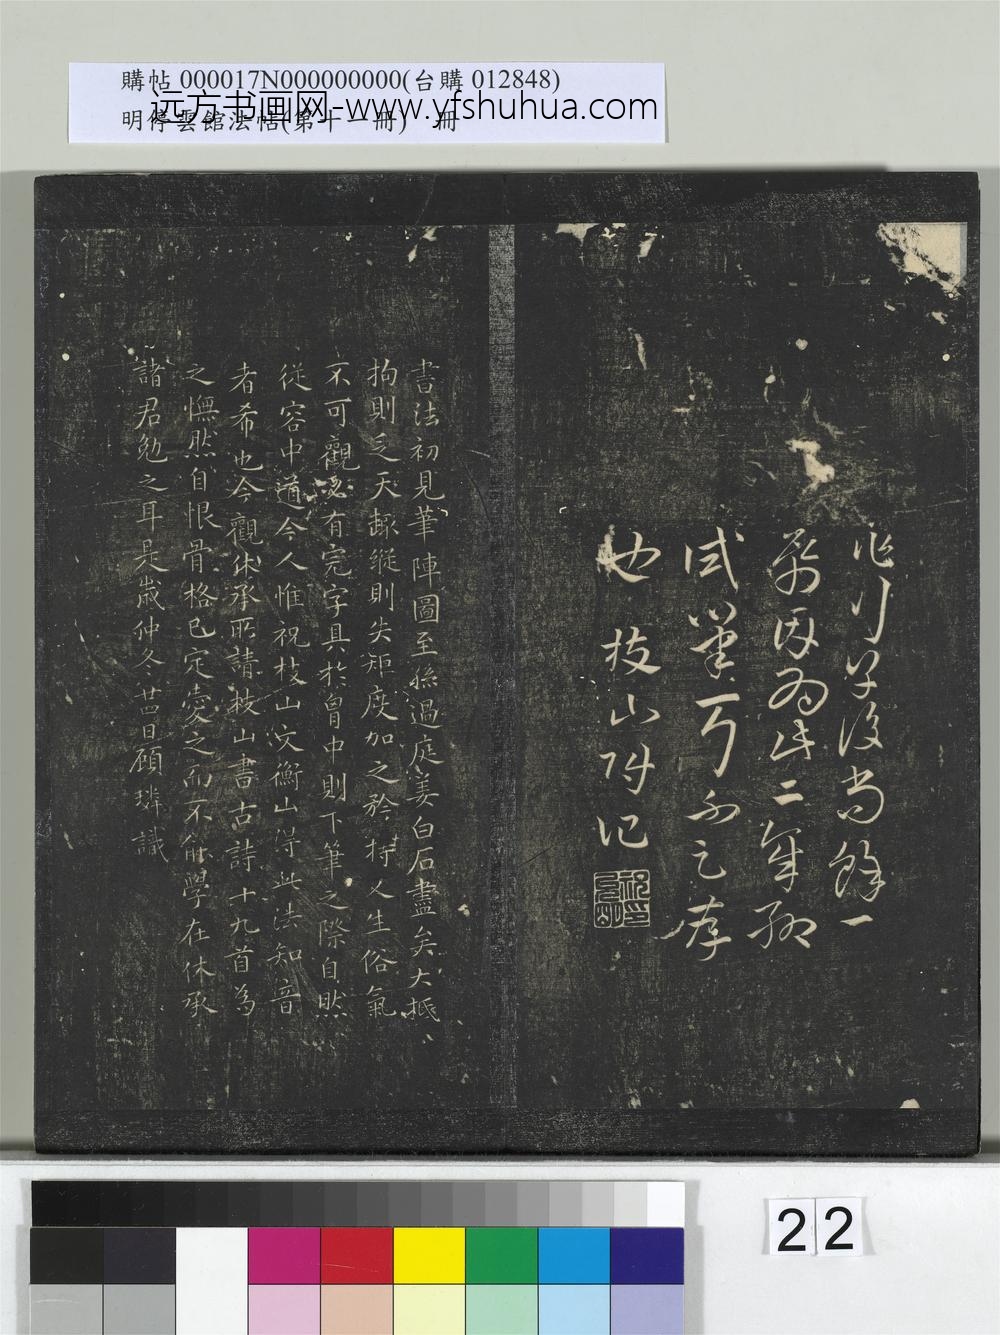 購帖 000017N000000000(台購 012848)
明停雲館法帖(第十一冊) 冊
远方书画网-www.yfshuhua.com
作行草後尚餘一
番因為此二章聊
試筆耳不足存
也 枝山附記
書法初見筆陣圖至孫過庭姜白石盡矣大抵
拘則乏天趣縱則失矩度加之矜持又生俗氣
不可觀必有完字具於胷中則下筆之際自然
從容中道今人惟祝枝山文衡山得此法知音
者希也今觀休承所請枝山書古詩十九首為
之憮然自恨骨格已定愛之而不能學在休承
諸君勉之耳是歲仲冬廿四日顧璘識
22